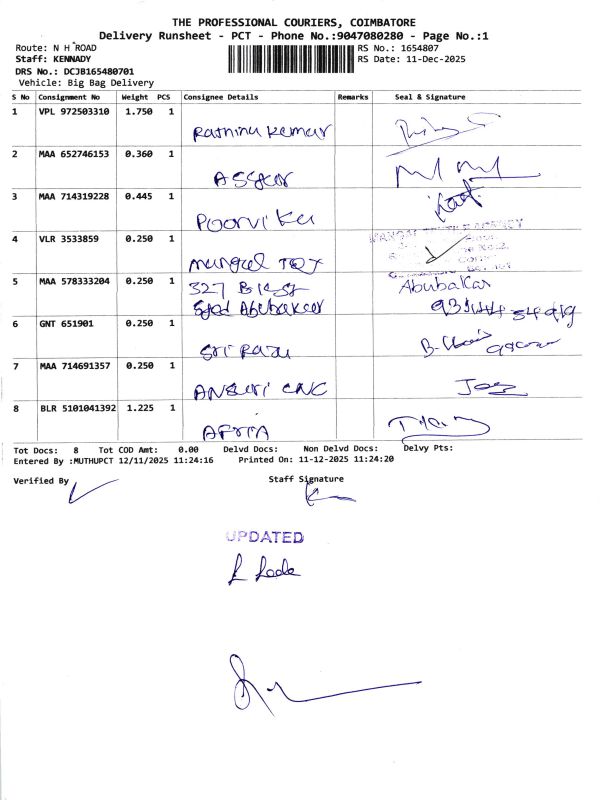 THE PROFESSIONAL COURIERS, COIMBATORE
Delivery Runsheet - PCT - Phone No.:9047080280 - Page No.:1
Route: N H ROAD RS No.: 1654807
Staff: KENNADY RS Date: 11-Dec-2025
DRS No.: DCJB165480701
Vehicle: Big Bag Delivery
S No Consignment No Weight PCS Consignee Details Remarks Seal & Signature
1 VPL 972503310 1.750 1
Rathina Kumar
2 MAA 652746153 0.360 1
3 MAA 714319228 0.445 1
4 VLR 3533859 0.250 1
5 MAA 578333204 0.250 1 327 Abubakar
Syed Abubakar
6 GNT 651901 0.250 1
Sri Raju
7 MAA 714691357 0.250 1
CNC
8 BLR 5101041392 1.225 1
Tot Docs: 8 Tot COD Amt: 0.00 Delvd Docs: Non Delvd Docs: Delvy Pts:
Entered By :MUTHUPCT 12/11/2025 11:24:16 Printed On: 11-12-2025 11:24:20
Verified By Staff Signature
UPDATED